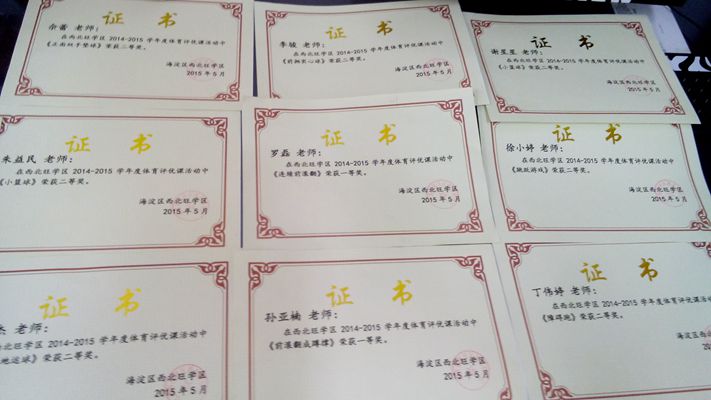 证 书
佘蕾 老师:
在西北旺学区 2014-2015 学年度体育评优课活动中
《正面双手垫球》荣获二等奖。
海淀区西北旺学区
2015年5月
证 书
李骏 老师:
在西北旺学区 2014-2015 学年度体育评优课活动中
《前抛实心球》荣获二等奖。
海淀区西北旺学区
2015年5月
证 书
谢星星 老师:
在西北旺学区 2014-2015 学年度体育评优课活动中
《小篮球》荣获二等奖。
海淀区西北旺学区
2015年5月
证 书
朱益民 老师:
在西北旺学区 2014-2015 学年度体育评优课活动中
《小篮球》荣获二等奖。
海淀区西北旺学区
2015年5月
证 书
罗磊 老师:
在西北旺学区 2014-2015 学年度体育评优课活动中
《连续前滚翻》荣获一等奖。
海淀区西北旺学区
2015年5月
证 书
徐小婷 老师:
在西北旺学区 2014-2015 学年度体育评优课活动中
《跳跃游戏》荣获二等奖。
海淀区西北旺学区
2015年5月
证 书
杰 老师:
在西北旺学区 2014-2015 学年度体育评优课活动中
地运球》荣获二等奖。
海淀区西北旺学区
2015年5月
证 书
孙亚楠 老师:
在西北旺学区 2014-2015 学年度体育评优课活动中
《前滚翻成蹲撑》荣获一等奖。
海淀区西北旺学区
2015年5月
证 书
丁伟婷 老师:
在西北旺学区 2014-2015 学年度体育评优课活动中
《障碍跑》荣获二等奖。
海淀区西北旺学区
2015年5月